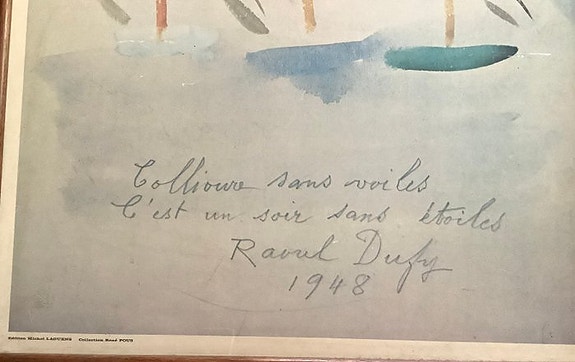 Collioure sans voiles
C'est un soir sans étoiles
Raoul Dufy
1948
Edition Michel LAGUENS Collection René POUS